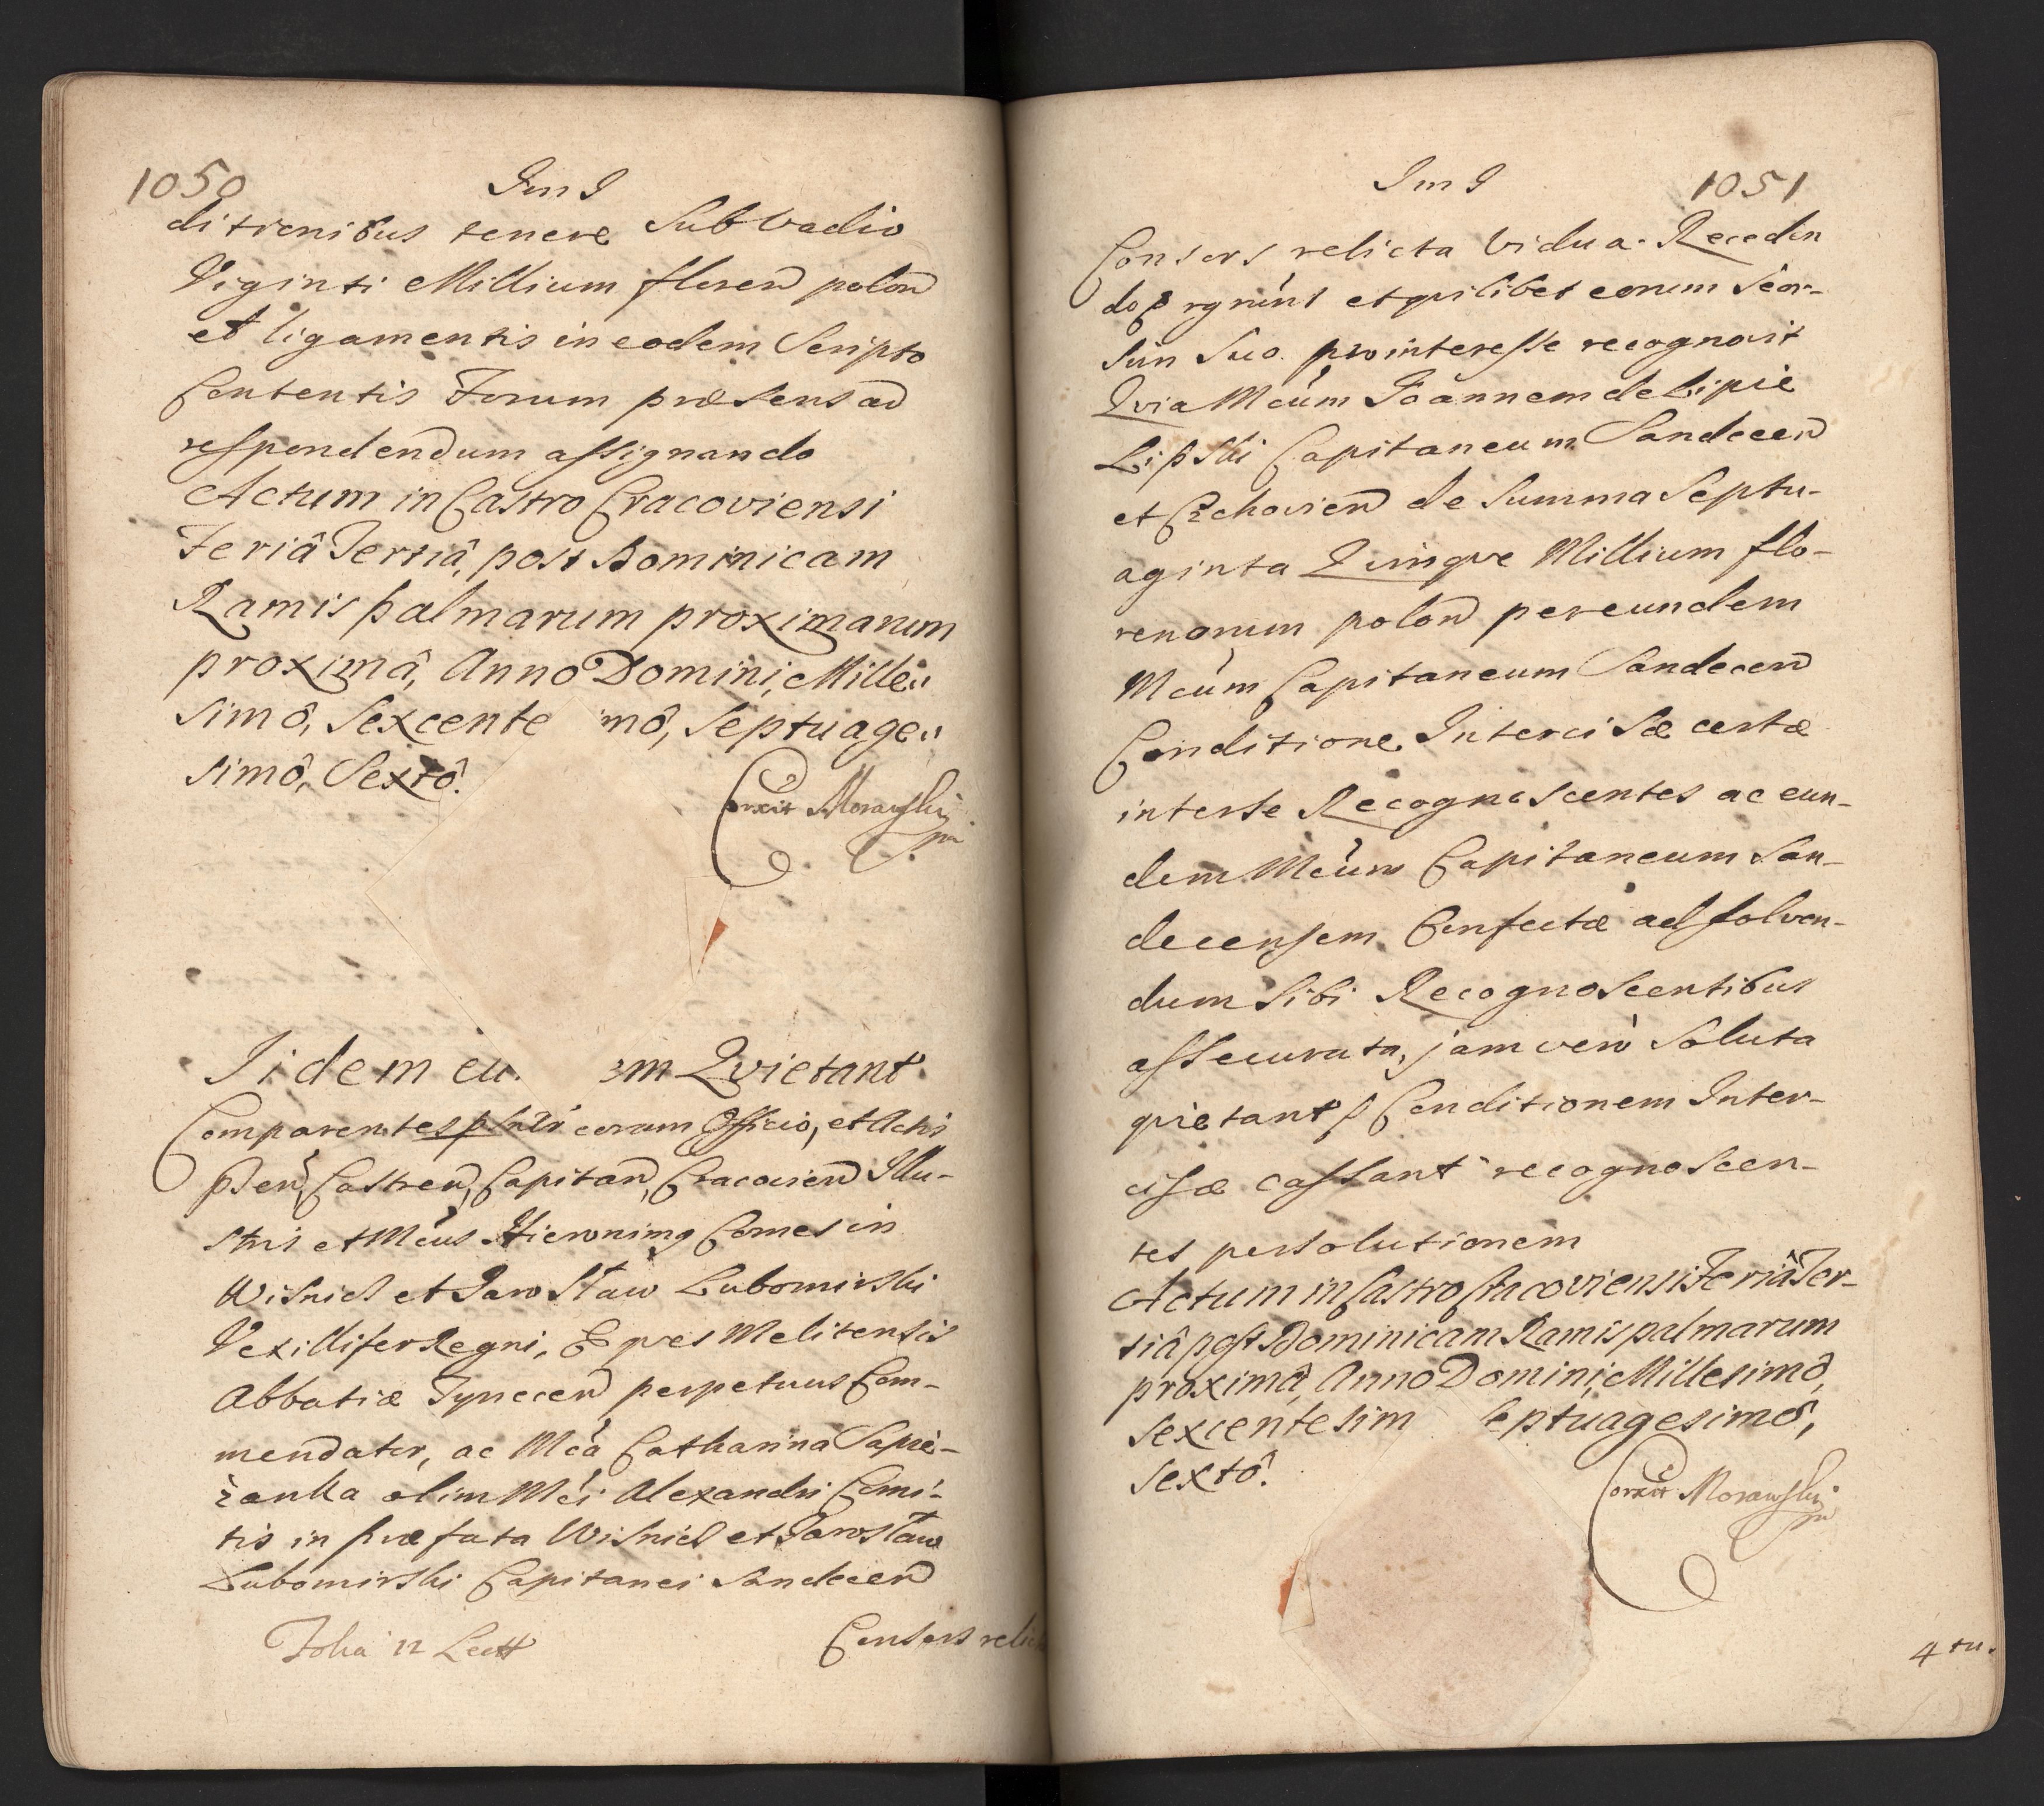 1050
Im I
ditionibus tenere Sub Vadio
Viginti Millium floren polon
et ligamentis in eodem Scripto
Contentis Forum præsens ad
respondendum assignando
Actum in Castro Cracoviensi
Feriâ Tertiâ, post Dominicam
Ramis palmarum proximarum
proximâ, Anno Domini, Mille„
simô, Sexcente mô, Septuage„
simô, Sextô.
Corexit Morawski
Iidem eu. em Qvietant
Comparentes coram Officio, et Actis
Castren, Capitan, Cracovien Illu-
stris et Mcus Hieronimg Comes in
Wisnicz et Jarosław Lubomirski
Vexillifer Regni, Eqves Melitensis
Abbatiæ Tynecen perpetuus Com-
mendator, ac Mca Catharina Sapie-
żanka olim Mci Alexandri Comi-
tis in præfata Wisnicz et Jarosław
Lubomirski Capitanei Sandecen
Folia 12 Lectt
Consors relic
Im I
1051
Consors relicta Vidua. Receden
do et qvilibet eorum Seor-
sim Suo. pro interesse recognovit
Qvia Mcum Joannem de Lipie
Lipski Capitaneum Sandecen
et Czchovien de Summa Septu-
aginta Qvinqve Millium flo-
renorum polon per eundem
Mcum Capitaneum Sandecen
Conditione Intercisæ certæ
inter se Recognoscentes ac eun-
dem Mcum Capitaneum San-
decensem Confectæ ad solven-
dum Sibi Recognoscentibus
assecurata, jam vero Soluta
qvietant Conditionem Inter-
cisæ cassant recognoscen-
tes persolutionem
Actum in Castro Cracoviensi Feriâ Ter-
tiâ post Dominicam Ramis palmarum
proximâ, Anno Domini, Millesimô,
sexcentesim Septuagesimô,
sextô.
Corexit Morawski
4 tu.